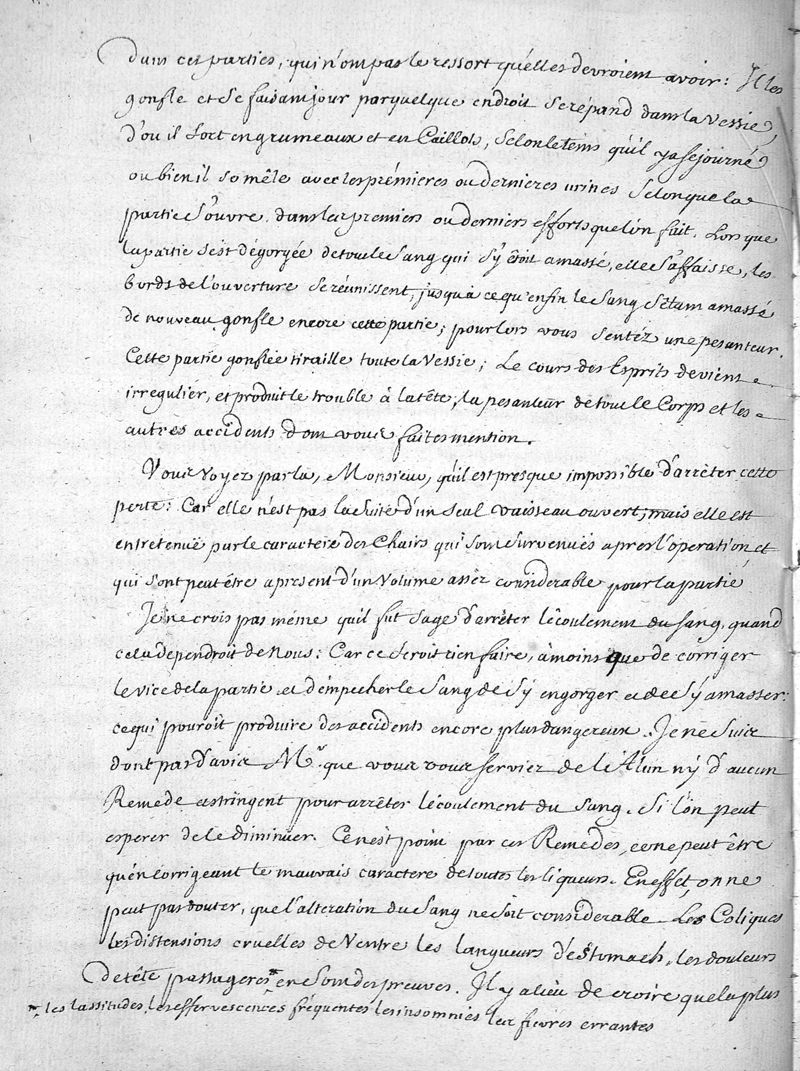 dans ces parties, qui n'ont pas le ressort qu'elles devroient avoir: Il les
gonfle et se faisant jour par quelque endroit se répand dans la vessie,
d'ou il sort en grumeaux et en Caillots, selon le tems qu'il y a sejourné
ou bien il se mêle avec les prémieres ou dernieres urines selon que la
partie s'ouvre dans les premiers ou derniers efforts que l'on fait. Lors que
la partie s'est dégorgée de tout le sang qui s'y étoit amassé, elle s'affaisse, les
bords de l'ouverture se réunissent, jusqu'a ce qu'enfin le sang s'étant amassé
de nouveau gonfle encore cette partie; pour lors vous sentéz une pesanteur.
Cette partie gonflée tiraille toute la vessie; Le cours des Esprits devient
irregulier, et produit le trouble à la tête, la pesanteur de tout le Corps et les
autres accidents dont vous faites mention.
Vous voyez par la, Monsieur, qu'il est presque impossible d'arrêter cette
perte: Car elle n'est pas la suite d'un seul vaisseau ouvert, mais elle est
entretenue par le caractere des Chairs qui sont survenues apres l'operation, et
qui sont peut être apresent d'un volume assez considerable pour la partie
Je ne crois pas méme qu'il fut sage d'arrêter l'écoulement du sang, quand
cela dependroit de nous: Car ce seroit rien faire, à moins que de corriger
le vice de la partie et d'empecher le sang de s'y engorger et de s'y amasser:
ce qui pouroit produire des accidents encore plus dangereux. Je ne suis
dont pas d'avis Mr. que vous vous serviez de l'Alun ny d'aucun
Remede astringent pour arrêter l'écoulement du sang. Si l'on peut
esperer de le diminuer. Ce n'est point par ces Remedes, ce ne peut être
qu'en corrigeant le mauvais caractere de toutes les liqueurs. En effet, on ne
peut pas douter, que l'alteration du sang ne soit considerable. Les Coliques
les distensions cruelles de ventre les langueurs d'estomach, les douleurs
de tête passageres * en sont des preuves. Il y a lieu de croire que la plus
* les lassitudes, les effervescences fréquentes les insomnies les fievres errantes